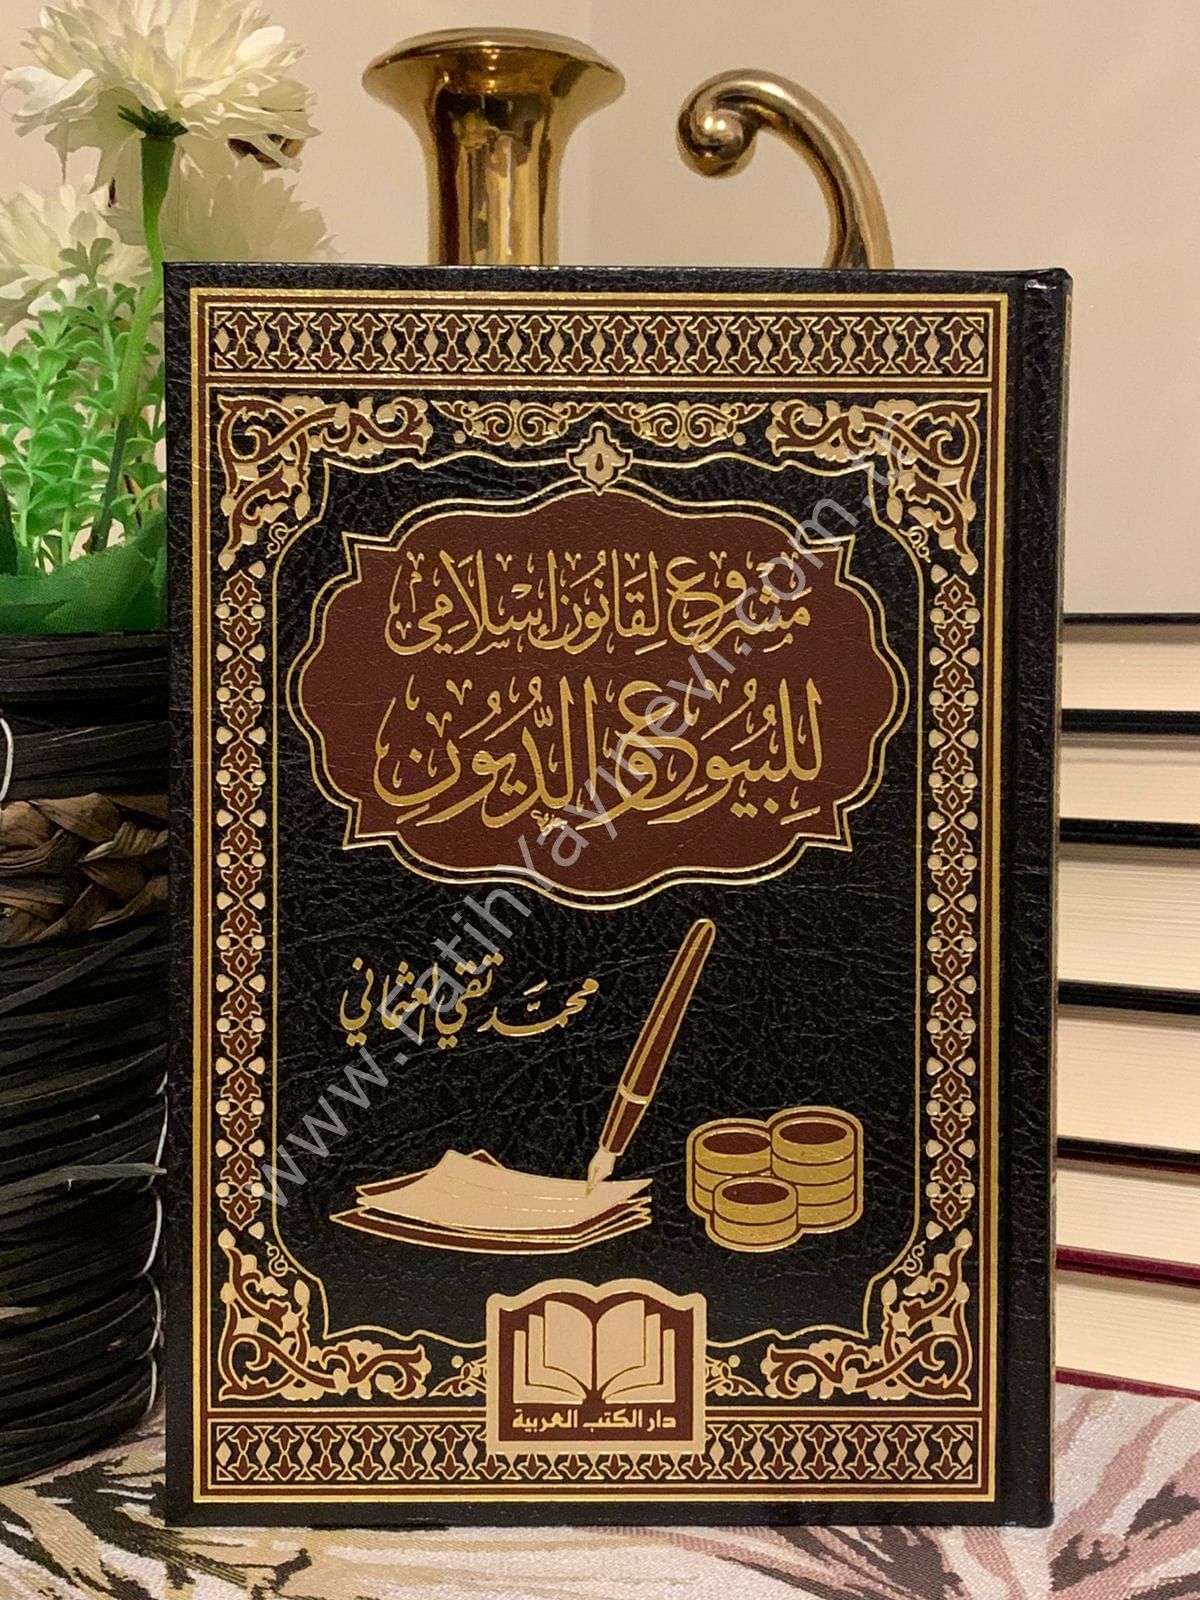 مَشْرُوعٌ لِقَانُونٍ إِسْلَامِيٍّ
لِلْبُيُوعِ وَالدُّيُونِ
محمَّد تقي العثماني
دار الكتب العربية
www.FatihYayinevi.com.tr